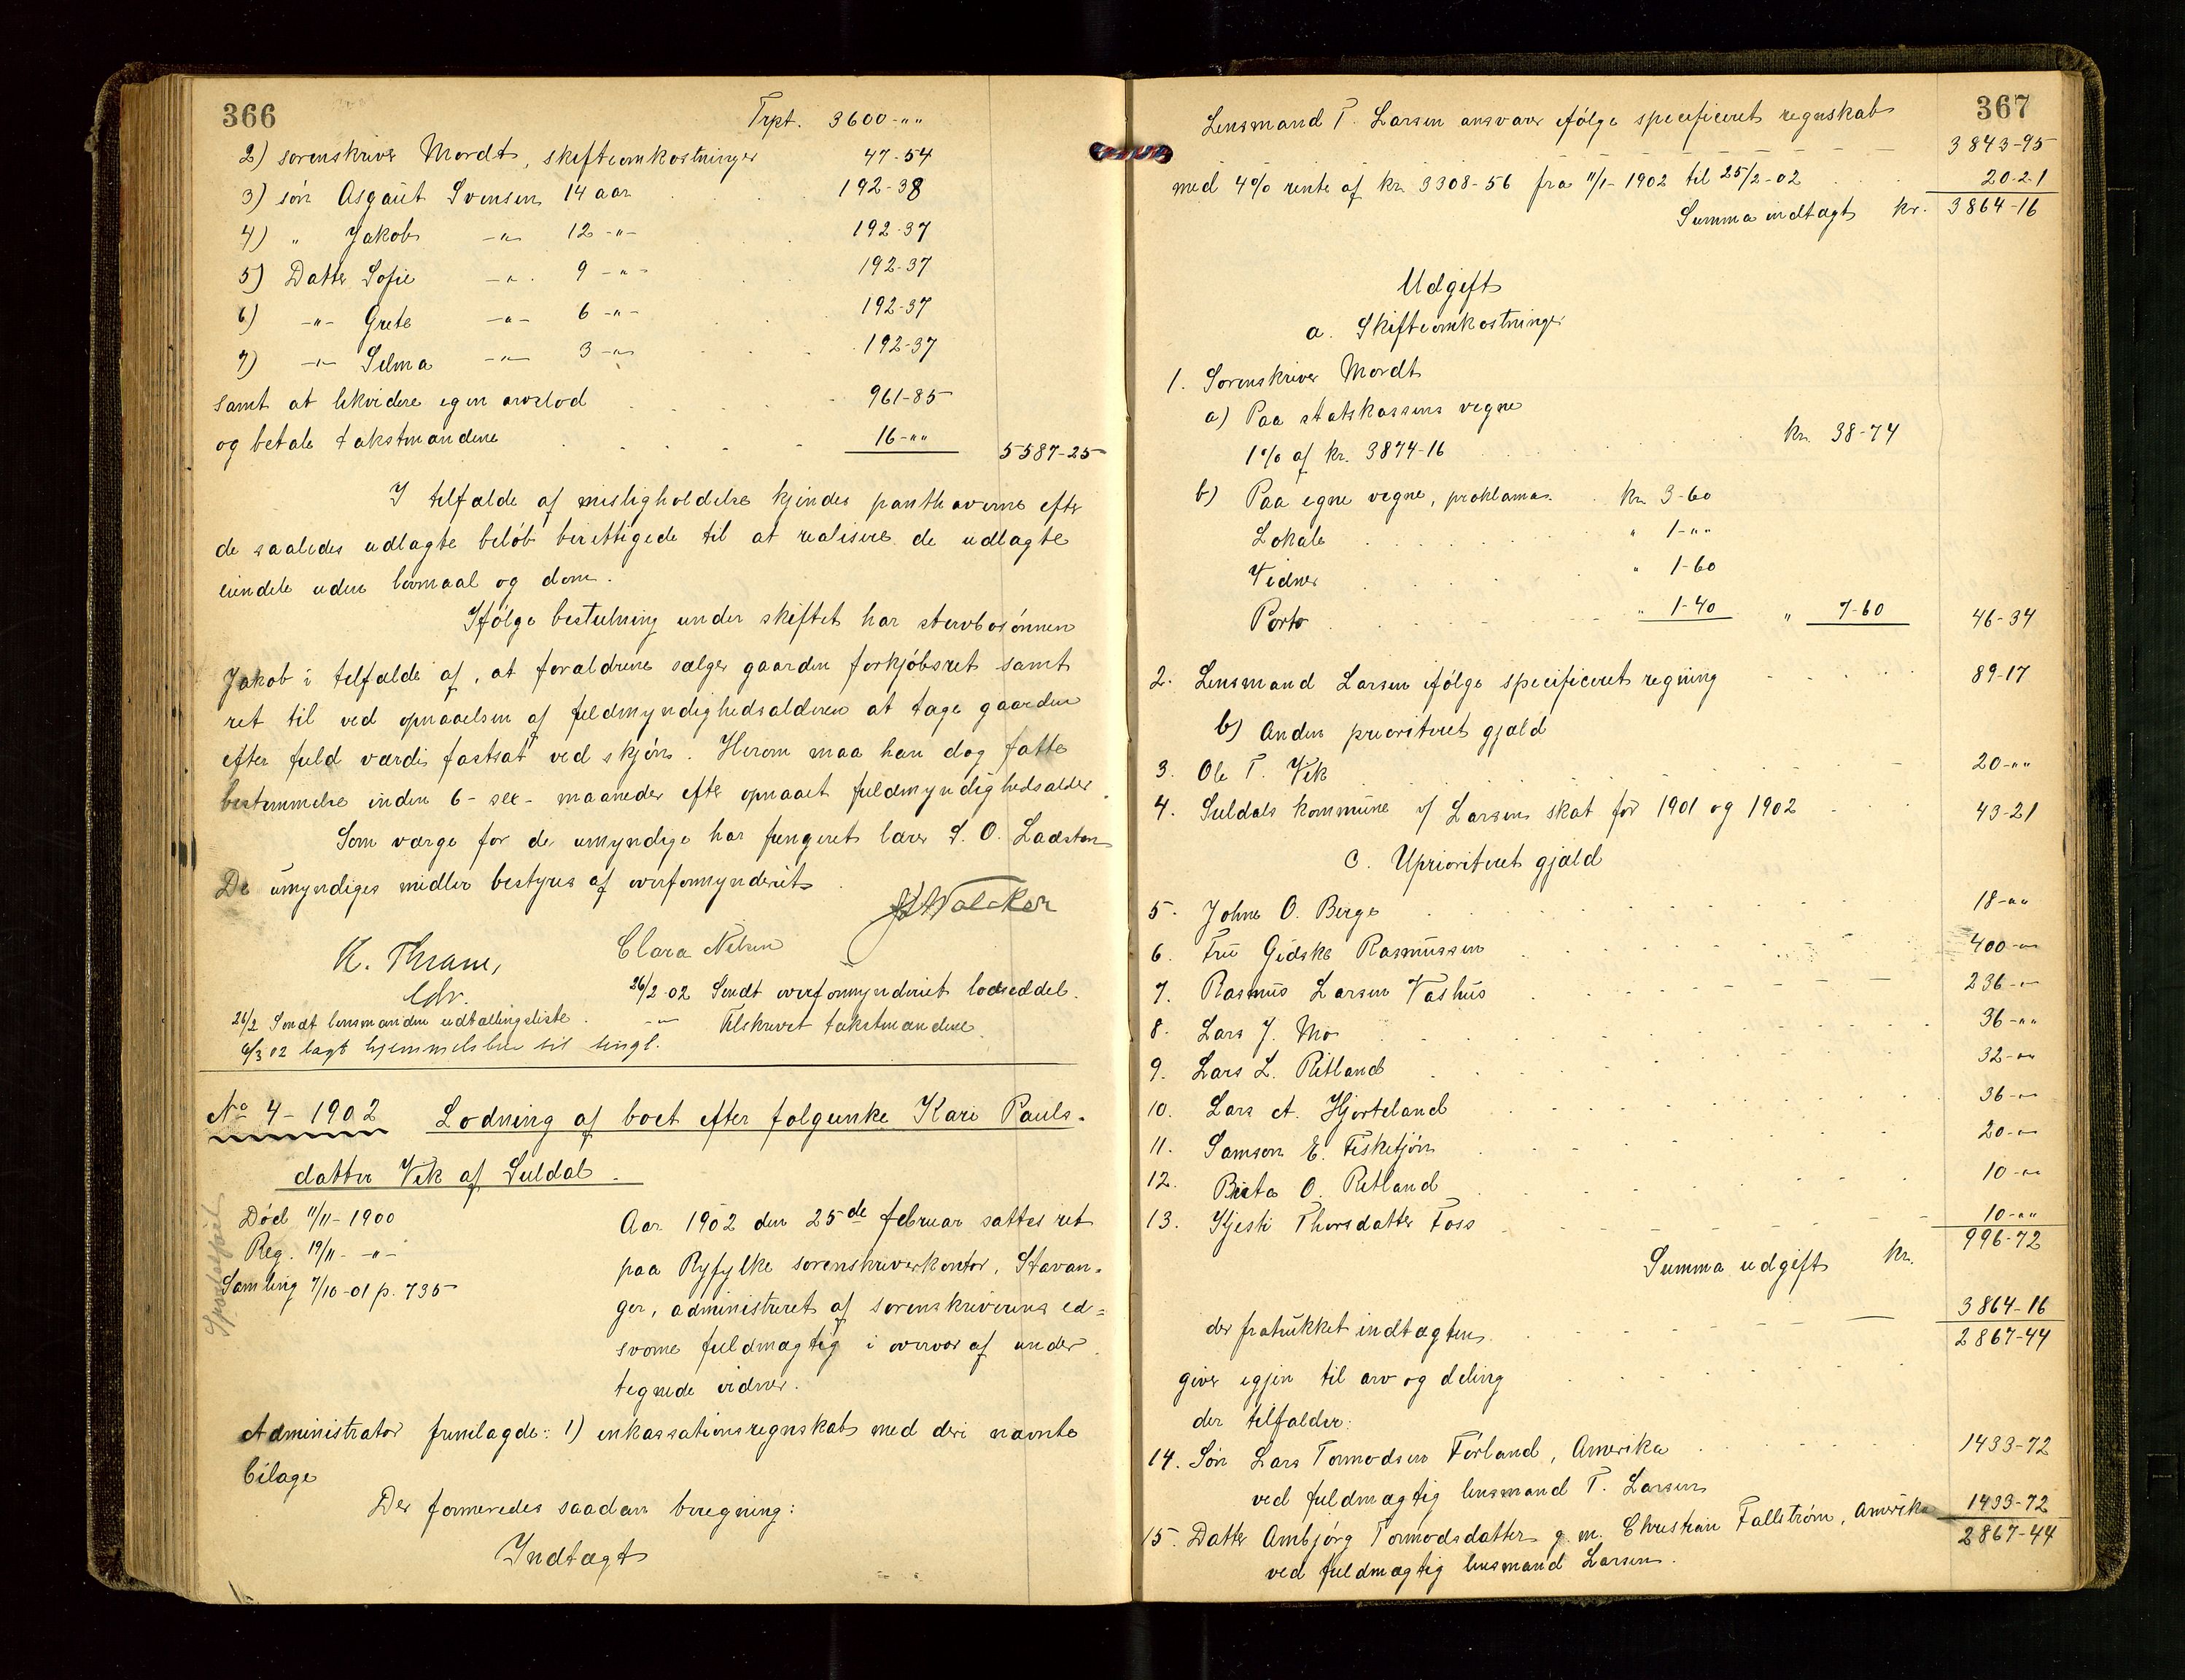 366
Trpt. 3600-""
2) sorenskriver Mordt, skifteomkostninger 47-54
3) søn Asgaut Svensen 14 aar 192-38
4) " Jakob -"- 12 -"- 192-37
5) Datter Sofie -"- 9 -"- 192-37
6) -"- Grete -"- 6 -"- 192-37
7) -"- Selma -"- 3 -"- 192-37
samt at likvidere egen arvelod 961-85
og betale takstmændene 16-"" 5587-25
I tilfælde af misligholdelse kjendes panthaverne efter
de saaledes udlagte beløb berettigede til at realisere de udlagte
eiendele uden lovmaal og dom.
Ifølge bestemning under skiftet har stervbosønnen
Jakob i tilfælde af, at forældrene sælger gaarden forkjøbsret samt
ret til ved opnaaelsen af fuldmyndighedsalderen at tage gaarden
efter fuld værdi fastsat ved skjøn. Herom maa han dog fatte
bestemmelse inden 6- sex- maaneder efter opnaaet fuldmyndighedsalder.
Som værge for de umyndige har fungeret lærer S. O. Ladsten
De umyndiges midler bestyres af overformynderiet.
Walcker
K. Thrane, Clara Nelsen
edv.
26/2 02 Sendt overformynderiet lodseddel.
26/2 Sendt lensmanden udtællingsliste. -"- Tilskrevet takstmændene.
6/3 02 lagt hjemmelsbrev til tingl.
No 4-1902 Lodning af boet efter følgeenke Kari Pauls-
datter Vik af Suldal.
Død 11/11-1900
Reg. 19/11- -"-
Samling 7/10-01 p. 735
Aar 1902 den 25de februar sattes ret
paa Ryfylke sorenskriverkontor, Stavan-
ger, administreret af sorenskriverens ed-
svorne fuldmægtig i overvær af under
tegnede vidner.
Administrator fremlagde: 1) inkassationsregnskab med deri nævnte
bilage
Der formeredes saadan beregning:
Indtægt
367
Lensmand T. Larsen ansvarer ifølge specificeret regnskab 3843-95
med 4% rente af kr. 3308-56 fra 11/1-1902 til 25/2-02 20-21
Summa indtægt kr. 3864-16
Udgift
a. Skifteomkostninger
1. Sorenskriver Mordt
a) Paa statskassens vegne
1% af kr. 3874-16 kr. 38-74
b) Paa egne vegne, proklama kr. 3-60
Lokale " 1-""
Vidner " 1-60
Porto " 1-40 " 7-60 46-34
2. Lensmand Larsen ifølge specificeret regning 89-17
b) Anden prioriteret gjæld
3. Ole T. Vik 20-""
4. Suldals kommune v/ Larsen skat for 1901 og 1902 43-21
c. Uprioriteret gjæld
5. Johne O. Berge 18-""
6. Fru Gidske Rasmussen 400-""
7. Rasmus Larsen Vashus 236-""
8. Lars J. Mo 36-""
9. Lars L. Ritland 32-""
10. Lars A. Hjorteland 36-""
11. Samson E. Fisketjøn 20-""
12. Birte O. Ritland 10-""
13. Kjesti Thorsdatter Foss 10-""
Summa udgift kr. 996-72
der fratrukket indtægten 3864-16
giver igjen til arv og deling 2867-44
der tilfalder:
14. Søn Lars Tormodsen Førland, Amerika 1433-72
ved fuldmægtig lensmand T. Larsen
15. Datter Ambjørg Tormodsdatter g. m. Christian Fallstrøm, Amerika 1433-72
ved fuldmægtig lensmand Larsen. 2867-44